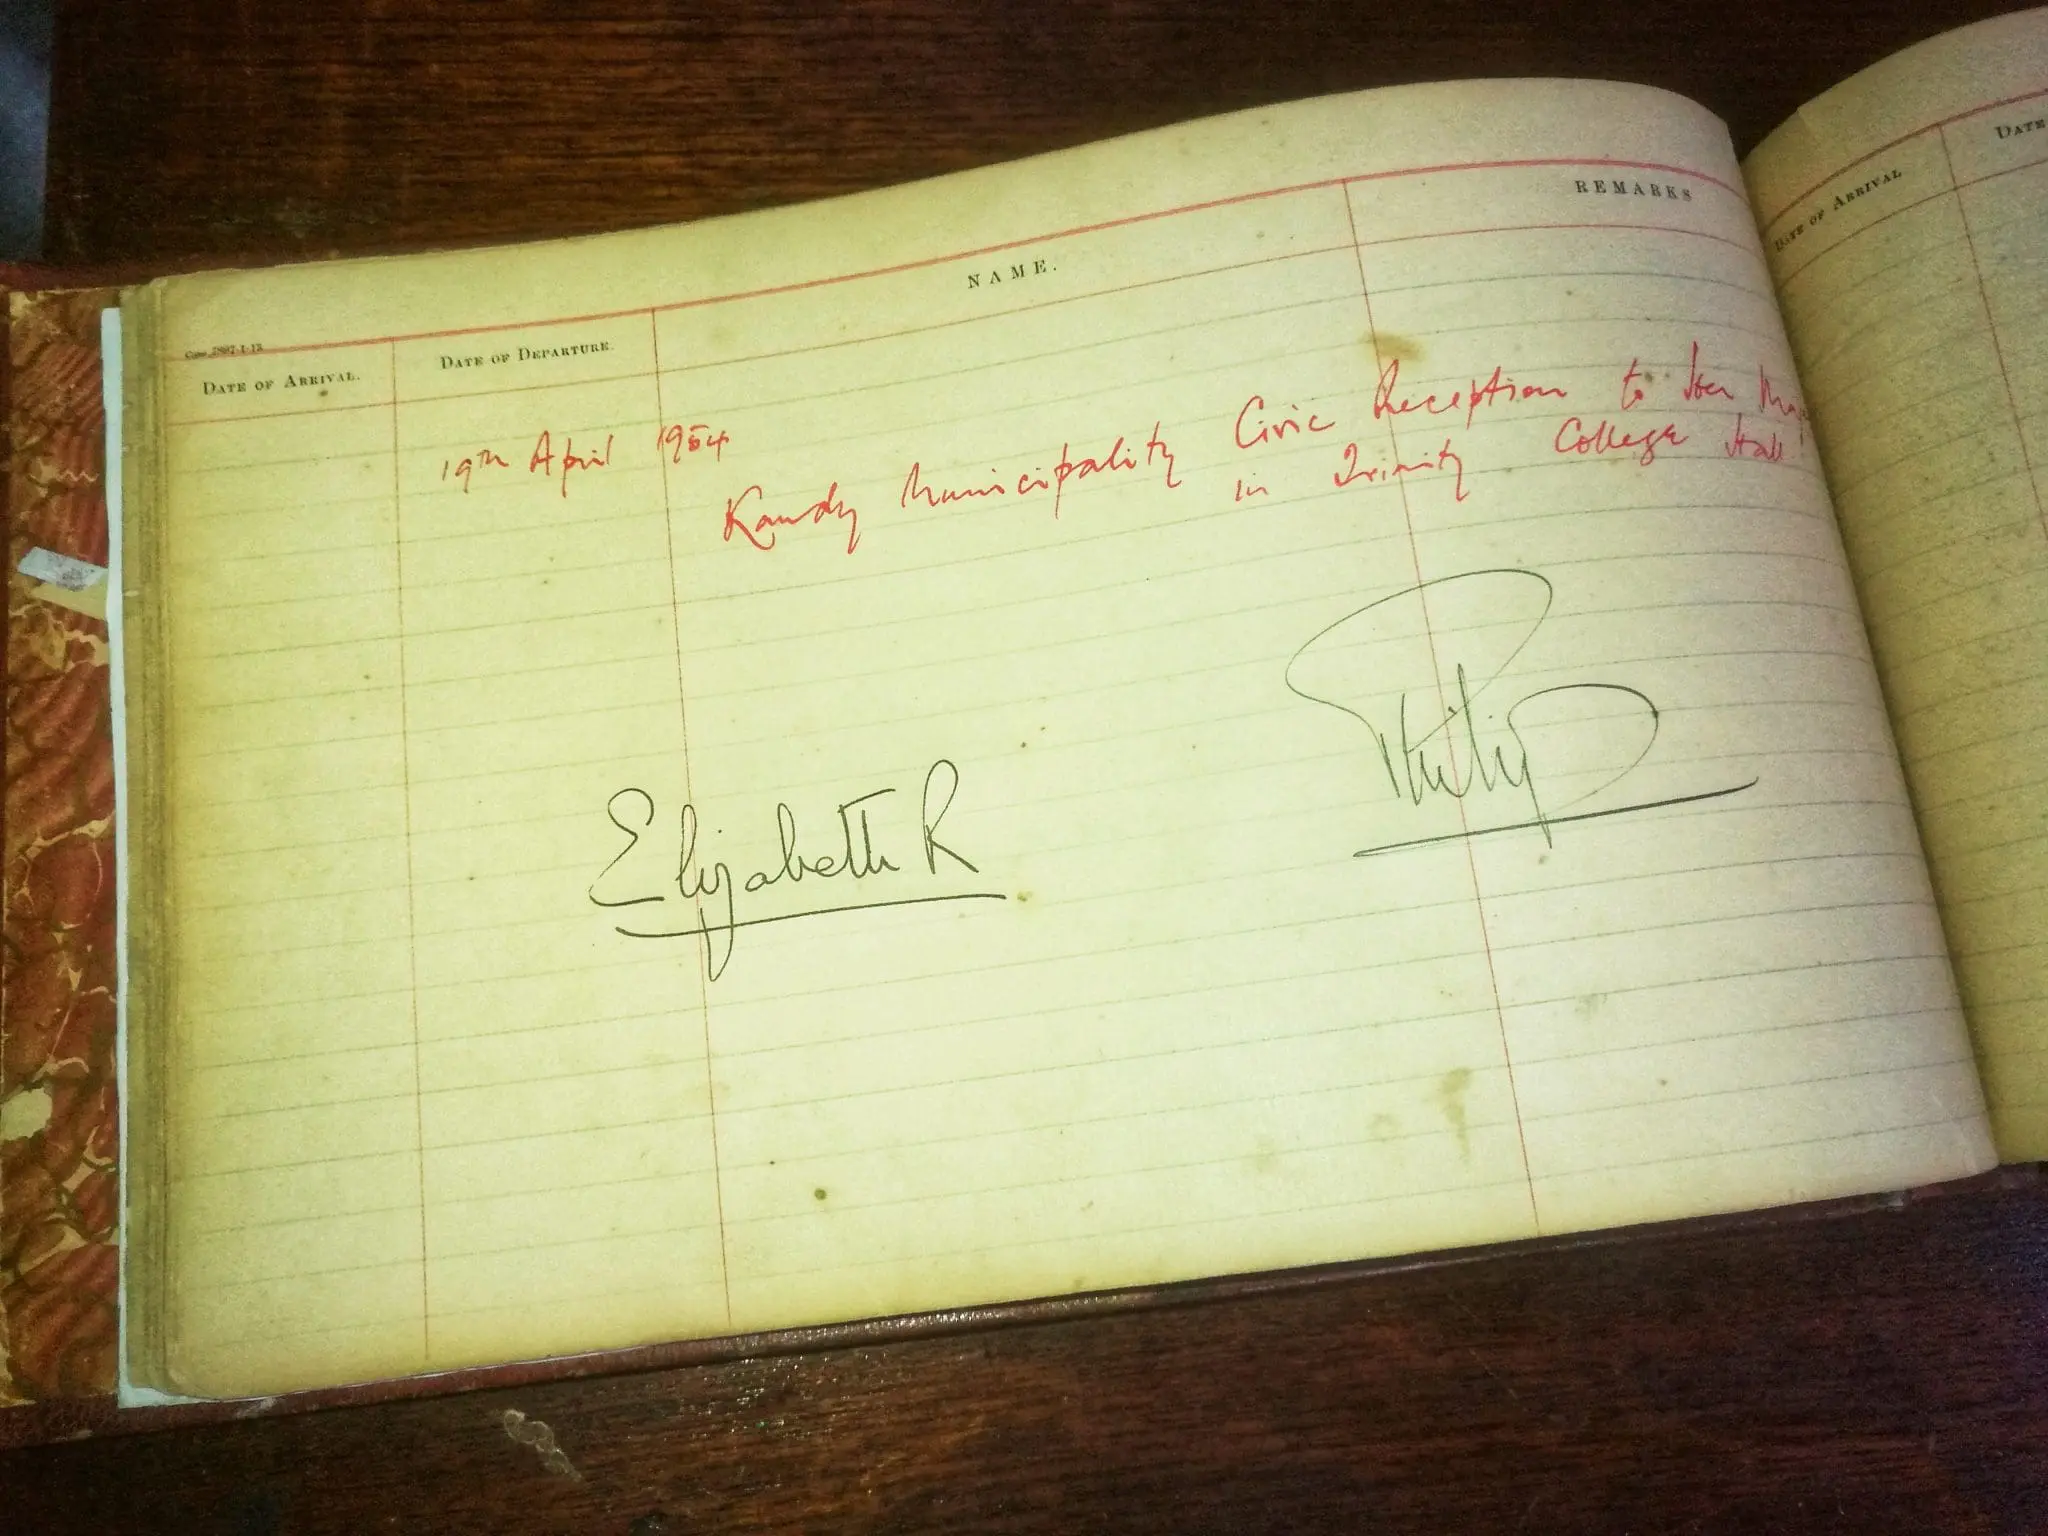 NAME.
REMARKS
DATE OF ARRIVAL.
DATE OF DEPARTURE.
19th April 1954
Kandy Municipality Civic Reception to Her Maj
in Trinity College Hall
Elizabeth R
Philip
DATE OF ARRIVAL
DATE